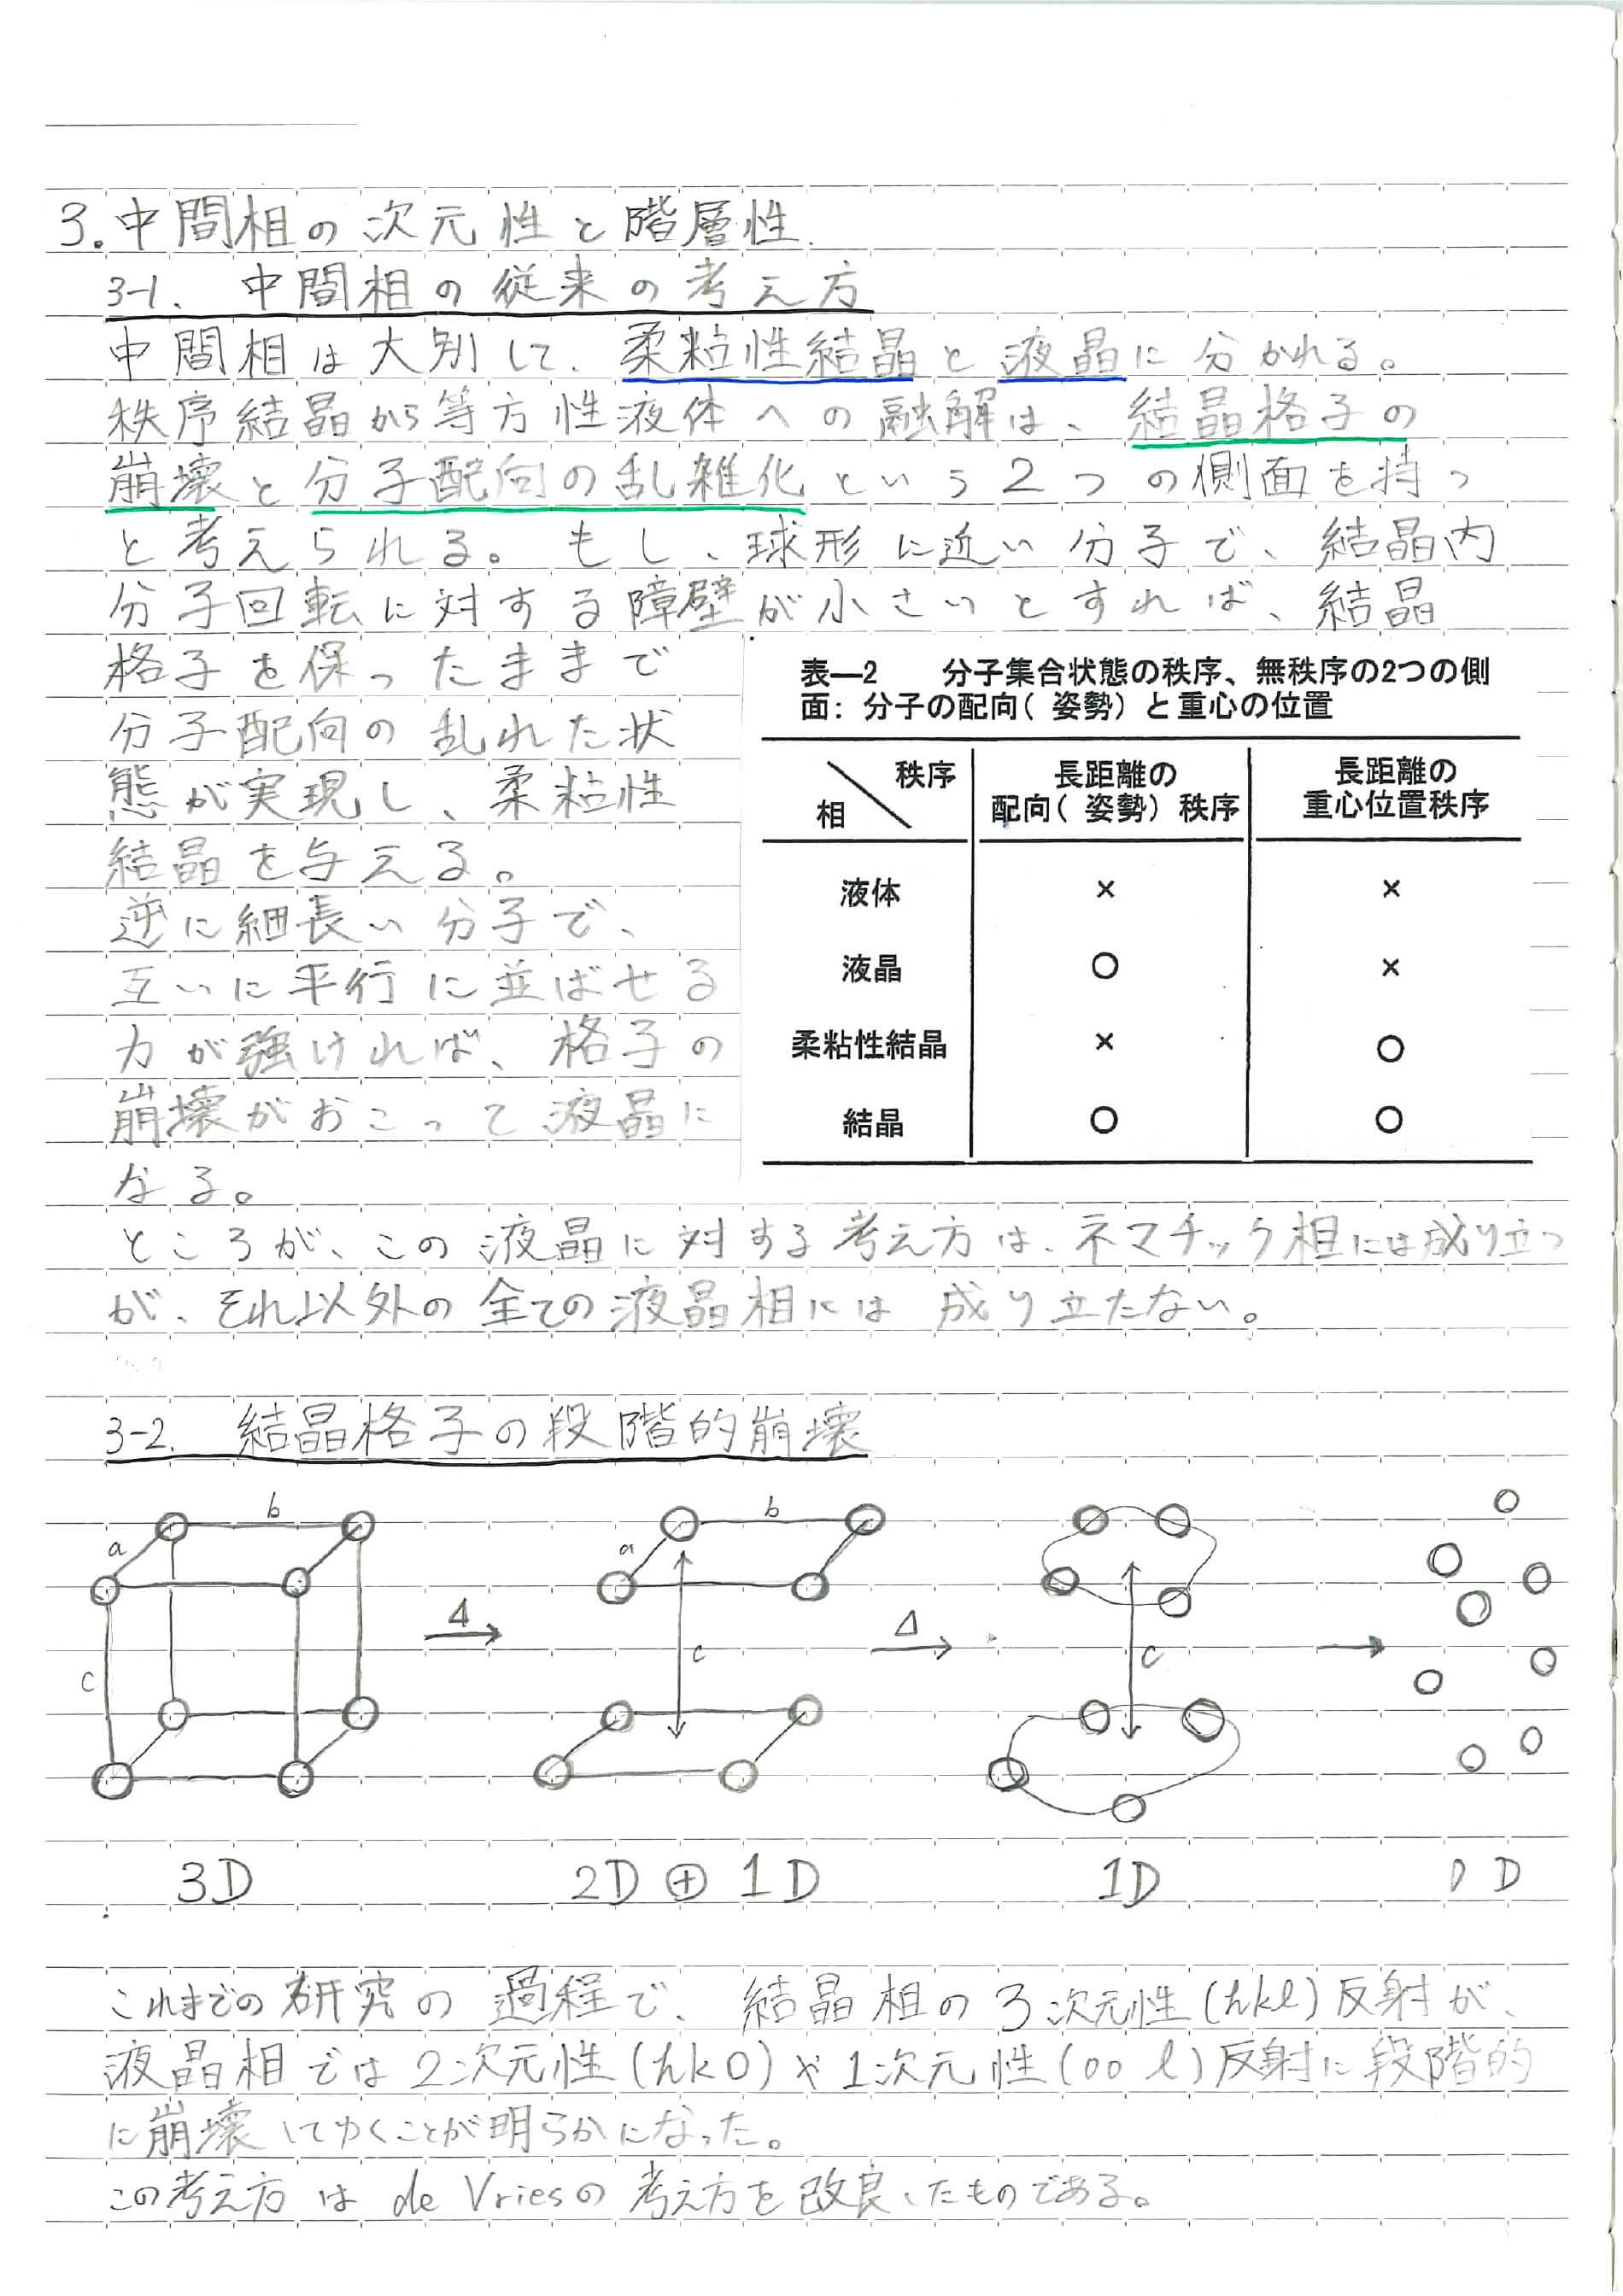 3. 中間相の次元性と階層性.
3-1. 中間相の従来の考え方
中間相は大別して、柔粘性結晶と液晶に分かれる。
秩序結晶から等方性液体への融解は、結晶格子の
崩壊と分子配向の乱雑化という2つの側面を持つ
と考えられる。もし、球形に近い分子で、結晶内
分子回転に対する障壁が小さいとすれば、結晶
格子を保ったままで
分子配向の乱れた状
態が実現し、柔粘性
結晶を与える。
逆に細長い分子で、
互いに平行に並ばせる
力が強ければ、格子の
崩壊がおこって液晶に
なる。
表―2 分子集合状態の秩序、無秩序の2つの側
面: 分子の配向( 姿勢) と重心の位置
秩序
相
長距離の
配向( 姿勢) 秩序
長距離の
重心位置秩序
液体 × ×
液晶 ○ ×
柔粘性結晶 × ○
結晶 ○ ○
ところが、この液晶に対する考え方は、ネマチック相には成り立つ
が、それ以外の全ての液晶相には成り立たない。
3-2. 結晶格子の段階的崩壊
a b c
Δ
a b c
Δ
c
3D 2D ⊕ 1D 1D 0D
これまでの研究の過程で、結晶相の3次元性(hkl)反射が、
液晶相では2次元性(hk0)や1次元性(00l)反射に段階的
に崩壊してゆくことが明らかになった。
この考え方は de Vriesの考え方を改良したものである。